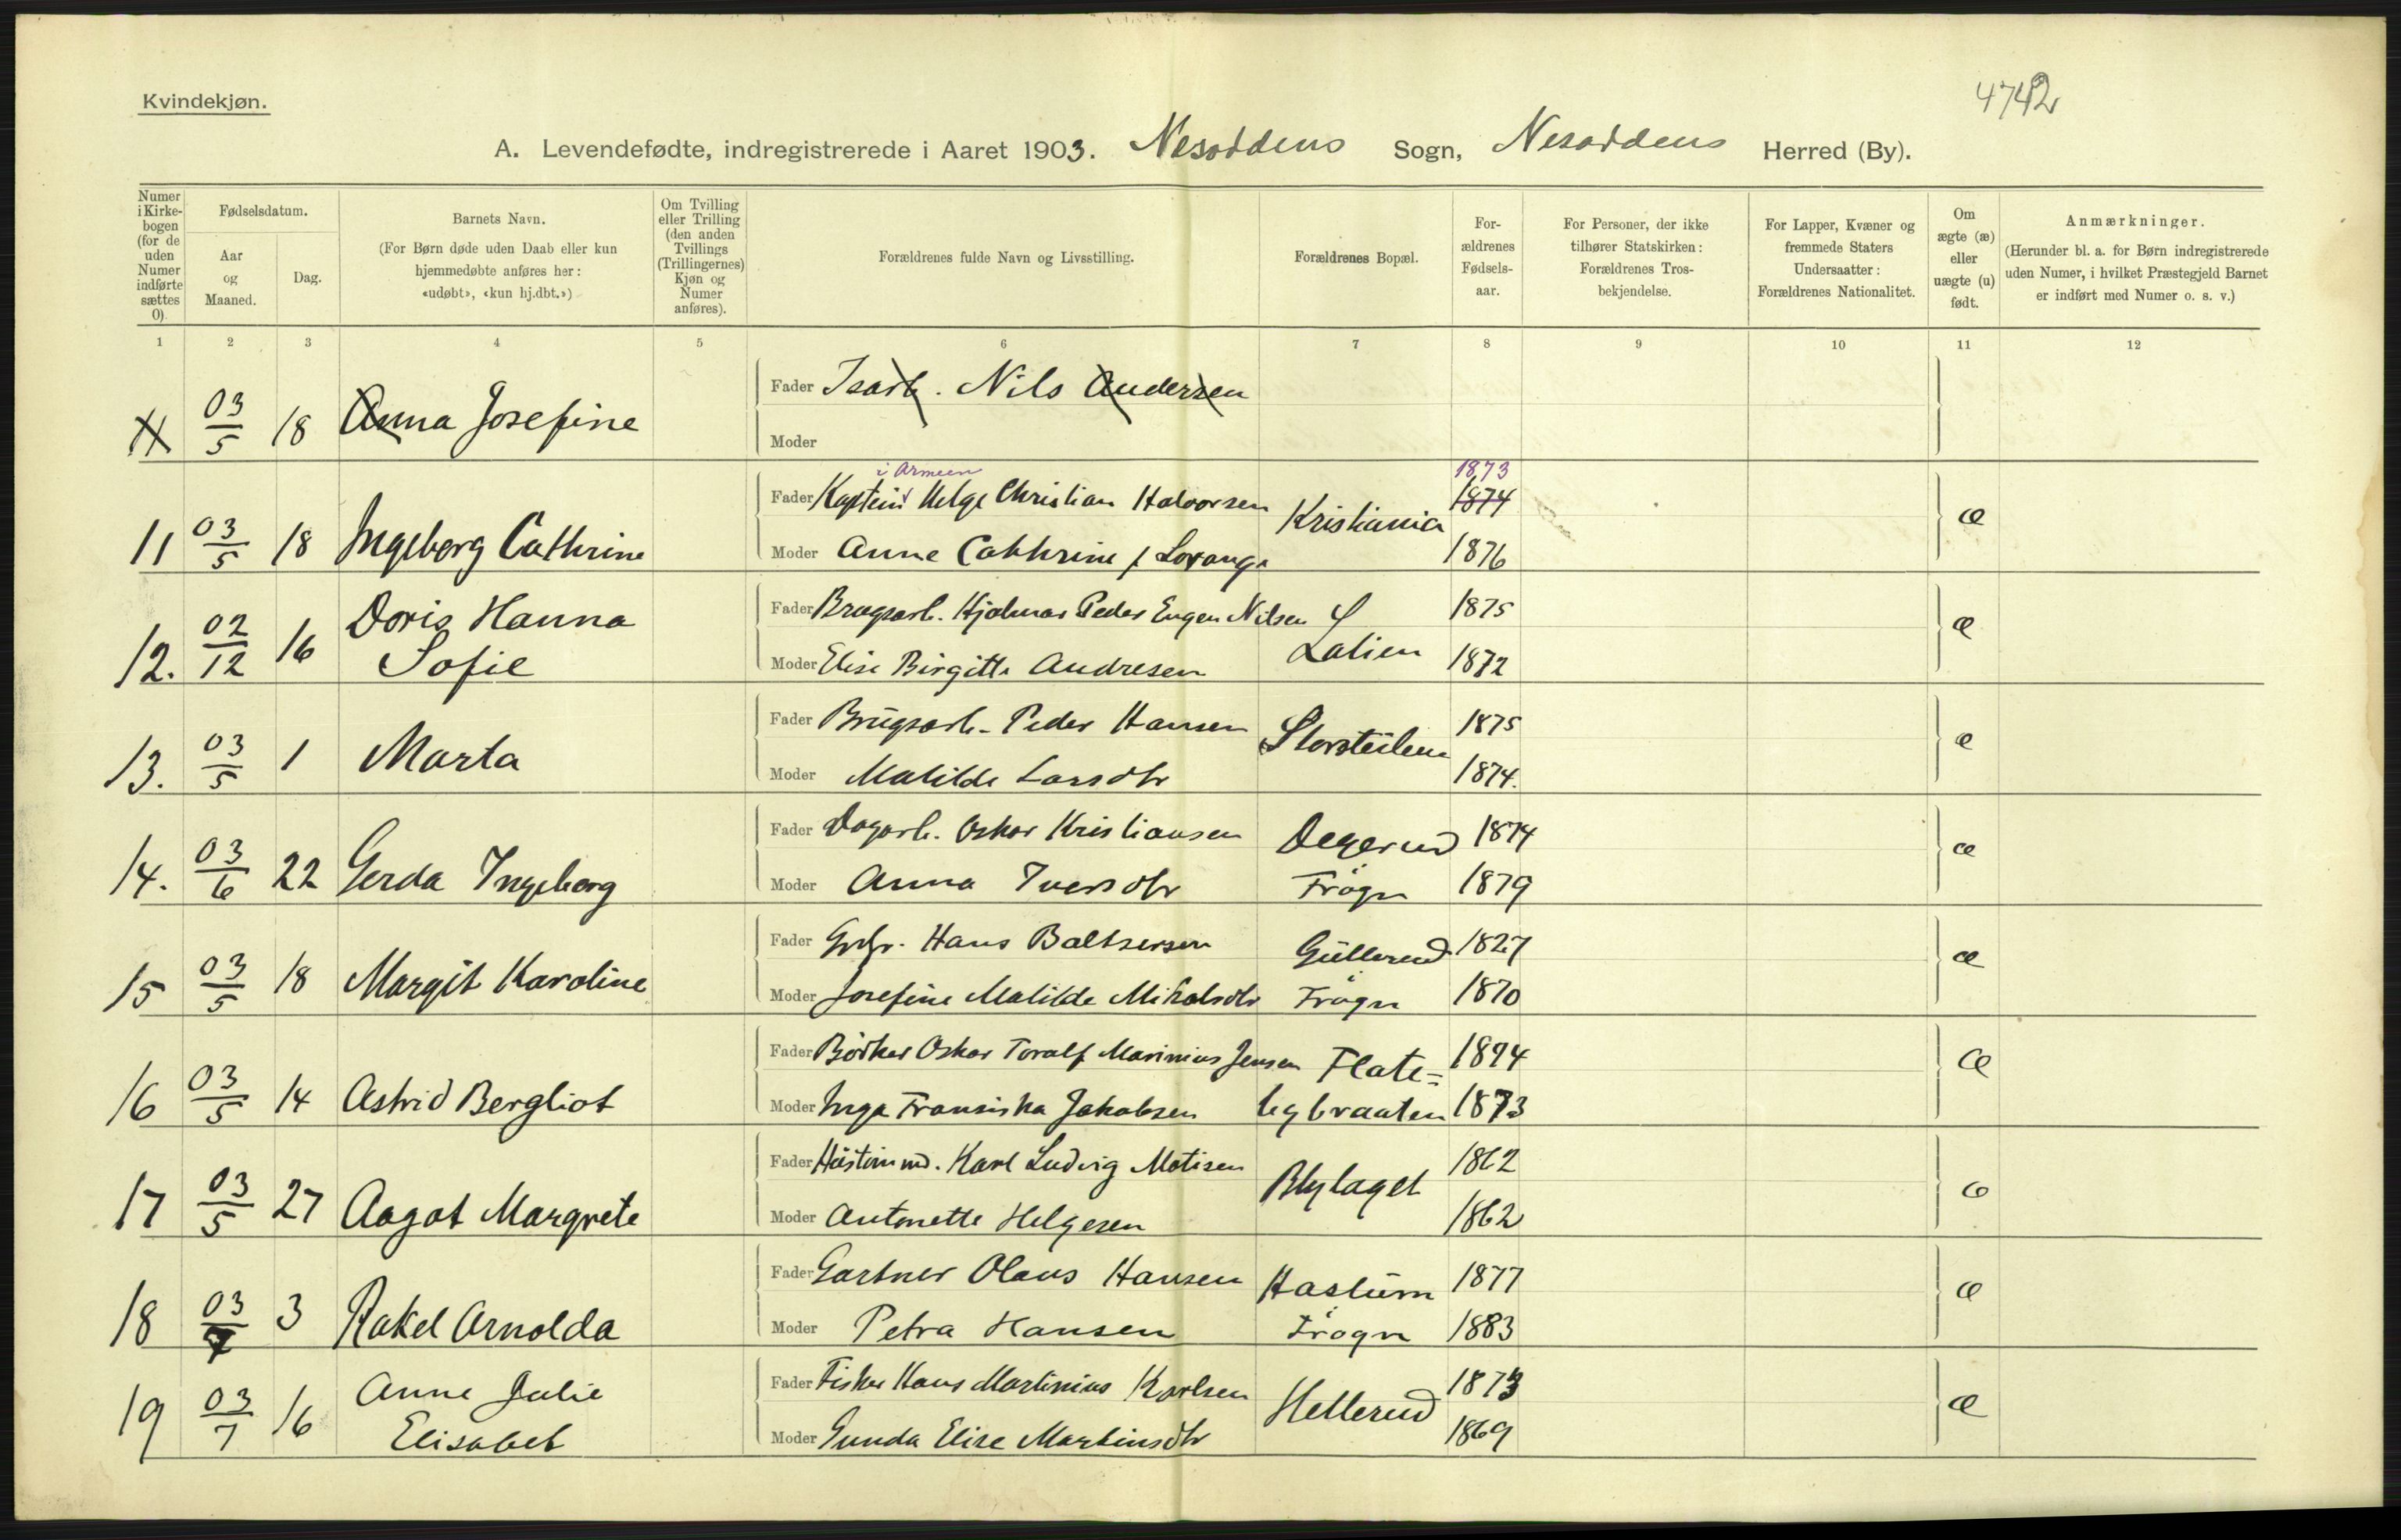 4742
Kvindekjøn.
A. Levendefødte, indregistrerede i Aaret 1903. Nesoddens Sogn, Nesoddens Herred (By).
Numer i Kirke-bogen (for de uden Numer indførte sættes 0)
Fødselsdatum.
Aar og Maaned.
Dag.
Barnets Navn.
(For Børn døde uden Daab eller kun hjemmedøbte anføres her: «udøbt», «kun hj.dbt.»)
Om Tvilling eller Trilling (den anden Tvillings (Trillingernes) Kjøn og Numer anføres).
Forældrenes fulde Navn og Livsstilling.
Forældrenes Bopæl.
For-ældrenes Fødsels-aar.
For Personer, der ikke tilhører Statskirken: Forældrenes Tros-bekjendelse.
For Lapper, Kvæner og fremmede Staters Undersaatter: Forældrenes Nationalitet.
Om ægte (æ) eller uægte (u) født.
Anmærkninger.
(Herunder bl. a. for Børn indregistrerede uden Numer, i hvilket Præstegjeld Barnet er indført med Numer o. s. v.)
1 2 3 4 5 6 7 8 9 10 11 12
11 03/5 18 Anna Josefine Fader Isarb. Nils Andersen
Moder
i Armeen 1873
Fader Kaptein Helge Christian Halvorsen Kristiania 1874
11 03/5 18 Ingeborg Cathrine æ
Moder Anne Cathrine f Lorange 1876
12. 02/12 16 Doris Hanna Fader Brugsarb. Hjalmar Peder Eugen Nilsen 1875 æ
Sofie Moder Elise Birgitte Andresen Lalien 1872
Fader Brugsarb. Peder Hansen Storsteilene 1875
13. 03/5 1 Marta æ
Moder Matilde Larsdtr 1874.
Fader Dagarb. Oskar Kristiansen Degerud 1874
14. 03/6 22 Gerda Ingeborg æ
Moder Anna Iversdtr Frogn 1879
Fader Gbr. Hans Baltsersen Gullerud 1827
15 03/5 18 Margit Karoline æ
Moder Josefine Matilde Mikalsdtr Frogn 1870
Fader Bødker Oskar Toralf Marinius Jensen Flate= 1874
16 03/5 14 Astrid Bergliot æ
Moder Inga Fransiska Jakobsen bybraaten 1873
Fader Karl Ludvig Matisen Blylaget 1862
17 03/5 27 Aagot Margrete æ
Moder Antonette Helgesen 1862
Fader Gartner Olaus Hansen Haslum 1877
18 03/7 3 Rakel Arnolda æ
Moder Petra Hansen Frogn 1883
19 03/7 16 Anne Julie Fader Fisker Hans Martinius Karlsen Hellerud 1873 æ
Elisabet Moder Gunda Elise Martinsdtr 1869